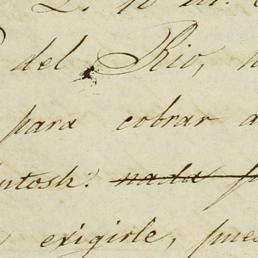 del Rio,
para cobrar a
ntosh. nada
exigirle, pues